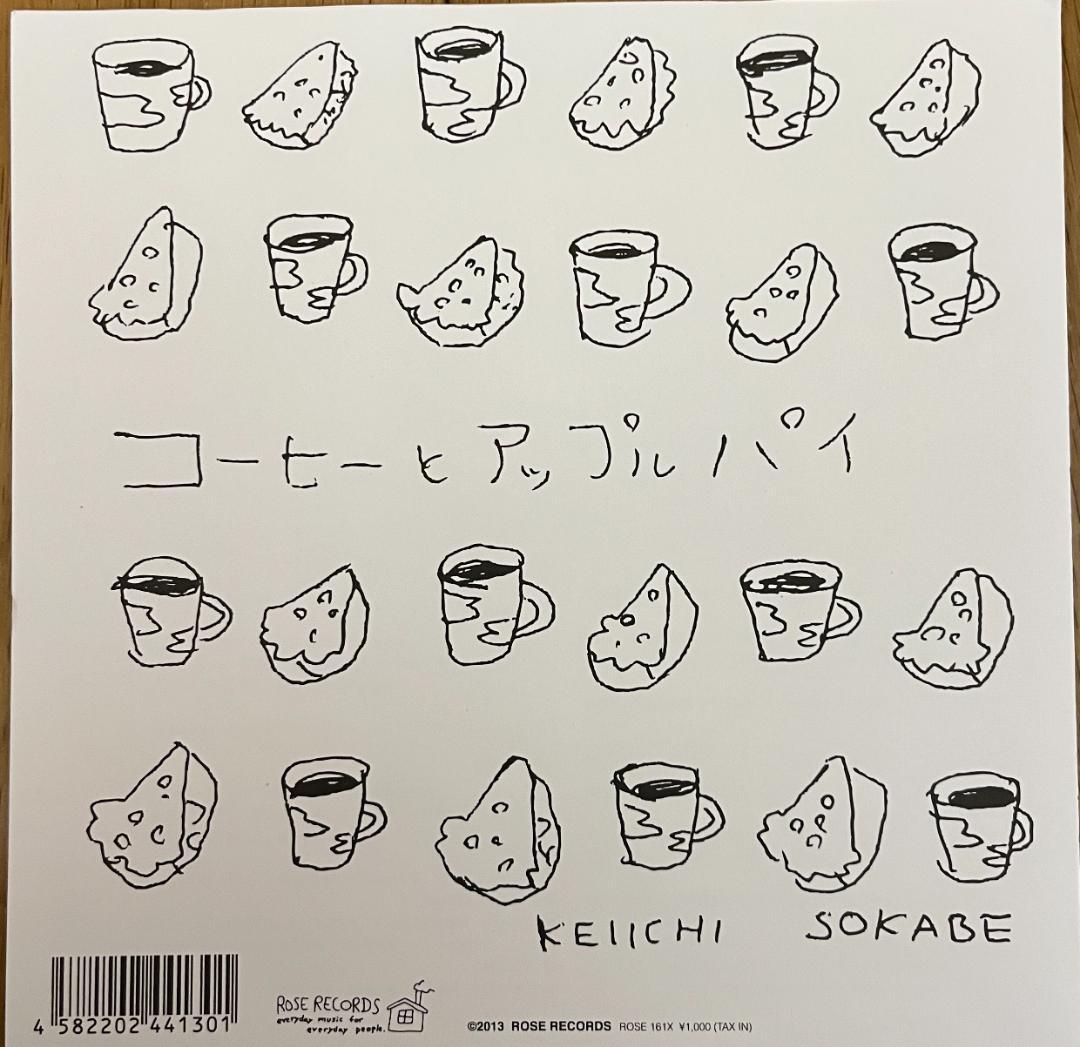 コーヒーとアップルパイ
KEIICHI SOKABE
4 582202 441301
ROSE RECORDS
everyday music for
everyday people.
©2013 ROSE RECORDS ROSE 161X ¥1,000 (TAX IN)